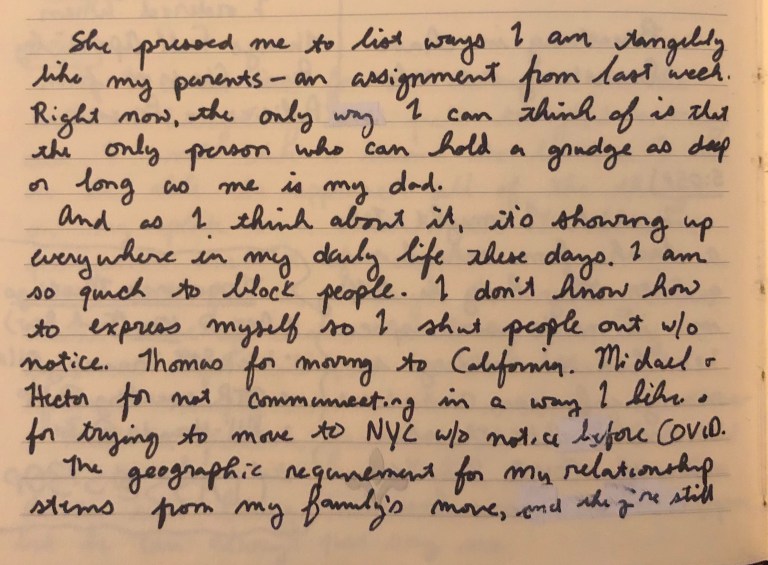 She pressed me to list ways I am tangibly
like my parents – an assignment from last week.
Right now, the only way I can think of is that
the only person who can hold a grudge as deep
or long as me is my dad.
And as I think about it, it's showing up
everywhere in my daily life these days. I am
so quick to block people. I don't know how
to express myself so I shut people out w/o
notice. Thomas for moving to California. Michael +
Hector for not communicating in a way I like.
for trying to move to NYC w/o notice before COVID.
The geographic requirement for my relationship
stems from my family's move, and they're still